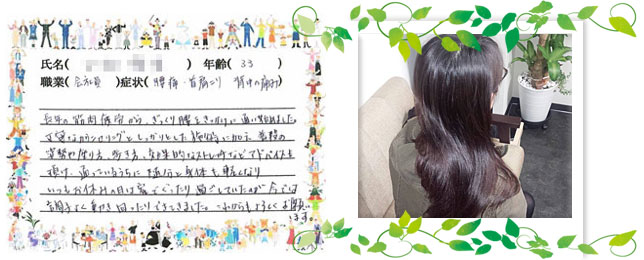 氏名( ) 年齢( 33 )
職業( 会社員 )症状( 腰痛・首肩こり 背中の痛み )
長年の筋肉疲労から、ぎっくり腰をきっかけに通い始めました。
丁寧なカウンセリングとしっかりとした施術に加え、普段の
姿勢や座り方、歩き方、効果的なストレッチなどアドバイスも
頂け、通っているうちに気分も身体も軽くなり
いつもお休みの日は家でぐったり過ごしていたのが今では
調子よく動き回ったりできてきました。これからもよろしくお願い
します。